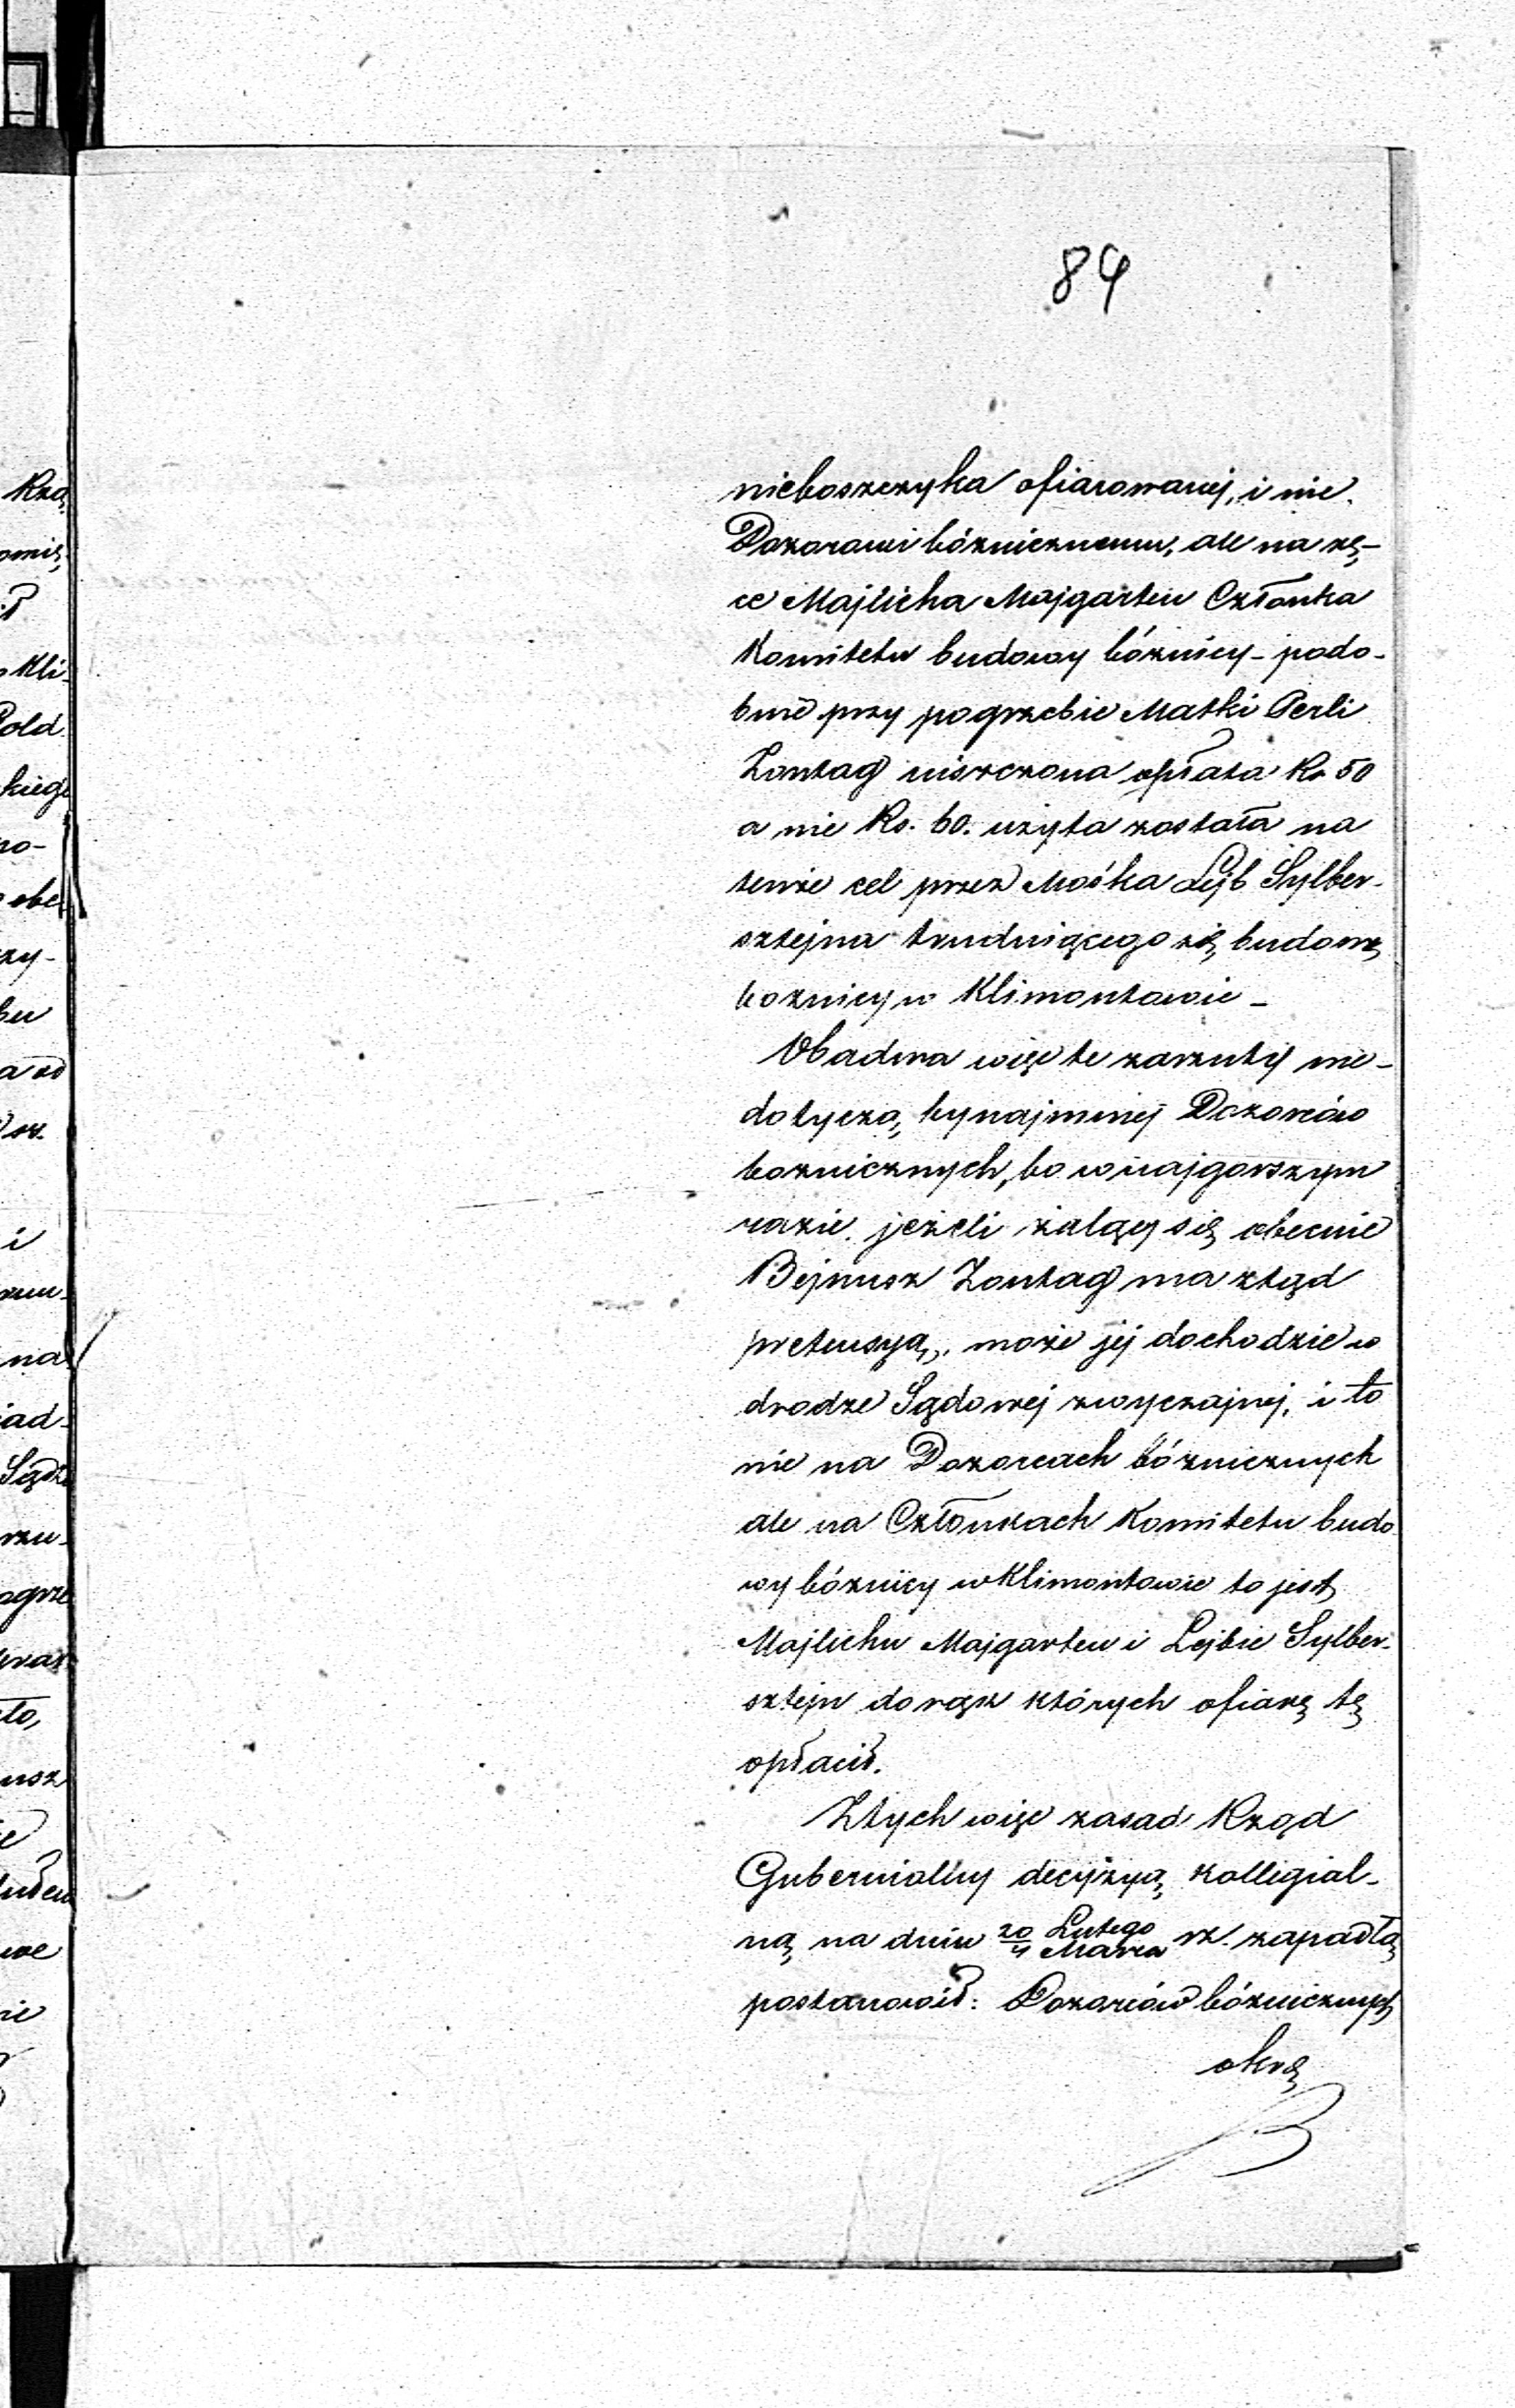 84
nieboszczyka ofiarowanej, i nie
Dozorowi bóżnicznemu, ale na rę-
ce Majlicha Majgarten Członka
Komitetu budowy bóżnicy - podo-
bnie przy pogrzebie Matki Perli
Zontag uiszczona opłata Rs 50
a nie Rs. 60. użyta została na
tenże cel przez Mośka Lejb Sylber-
sztejna trudniącego się budową
boznicy w Klimontowie -
Obadwa więc te zarzuty nie-
dotyczą, bynajmniej Dozorców
boznicznych, bo w najgorszym
razie jeżeli żalący się obecnie
Bejnusz Zontag ma ztąd
pretensyą, może jej dochodzić w
drodze Sądowej zwyczajnej, i to
nie na Dozorcach bóżnicznych
ale na Członkach Komitetu budo
wy bóżnicy w Klimontowie to jest
Majlichu Majgarten i Lejbie Sylber-
sztejn do rąk których ofiarę tę
opłacił.
Z tych więc zasad Rząd
Gubernialny decyzyą kollegial-
ną, na dniu 20 Lutego / 4 Marca rz. zapadłą
postanowił: Dozorców bóżnicznych
okrę
Rzą
Kli-
kiego
no-
zy-
i
na
iad-
Sądz
rzu-
ogrze
to,
usz